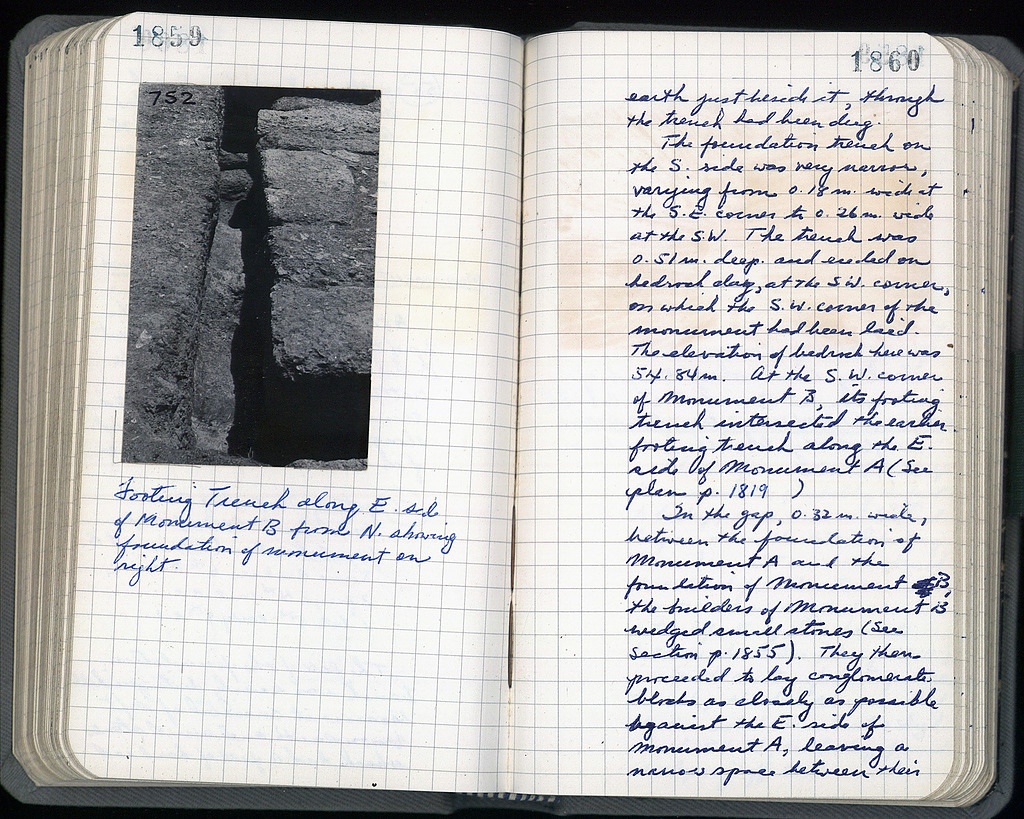 1859
752
Footing Trench along E. side
of Monument B from N. showing
foundation of monument on
right.
1860
earth just beside it, through
the trench had been dug.
The foundation trench on
the S. side was very narrow,
varying from 0.18 m. wide at
the S.E. corner to 0.26 m. wide
at the S.W. The trench was
0.51 m. deep. and ended on
bedrock clay, at the S.W. corner,
on which the S.W. corner of the
monument had been laid.
The elevation of bedrock here was
54.84 m. At the S.W. corner
of Monument B, its footing
trench intersected the earlier
footing trench along the E.
side of Monument A (See
plan p. 1819 )
In the gap, 0.32 m. wide,
between the foundation of
Monument A and the
foundation of Monument B,
the builders of Monument B
wedged small stones (See
Section p. 1855). They then
proceeded to lay conglomerate
blocks as closely as possible
against the E. side of
Monument A, leaving a
narrow space between their